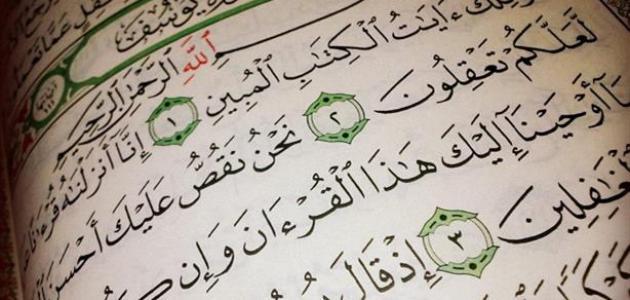 عَمَّا
يُوسُفَ
ٱللَّهِ ٱلرَّحْمَٰنِ ٱلرَّحِيمِ
ءَايَٰتُ ٱلْكِتَٰبِ ٱلْمُبِينِ ١ إِنَّآ أَنزَلْنَٰهُ قُرْءَٰنًا
لَّعَلَّكُمْ تَعْقِلُونَ ٢ نَحْنُ نَقُصُّ عَلَيْكَ أَحْسَنَ
بِمَآ أَوْحَيْنَآ إِلَيْكَ هَٰذَا ٱلْقُرْءَانَ وَإِن
ٱلْغَٰفِلِينَ ٣ إِذْ قَالَ